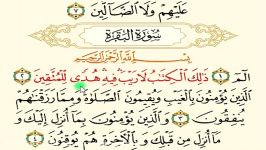 عَلَيْهِمْ وَلَا ٱلضَّآلِّينَ ٧
سُورَةُ الْبَقَرَة
بِسْمِ ٱللَّهِ ٱلرَّحْمَٰنِ ٱلرَّحِيمِ
الٓمٓ ١ ذَٰلِكَ ٱلْكِتَٰبُ لَا رَيْبَ فِيهِ هُدًى لِّلْمُتَّقِينَ ٢
ٱلَّذِينَ يُؤْمِنُونَ بِٱلْغَيْبِ وَيُقِيمُونَ ٱلصَّلَوٰةَ وَمِمَّا رَزَقْنَٰهُمْ
يُنفِقُونَ ٣ وَٱلَّذِينَ يُؤْمِنُونَ بِمَآ أُنزِلَ إِلَيْكَ وَ
مَآ أُنزِلَ مِن قَبْلِكَ وَبِٱلْأَخِرَةِ هُمْ يُوقِنُونَ ٤